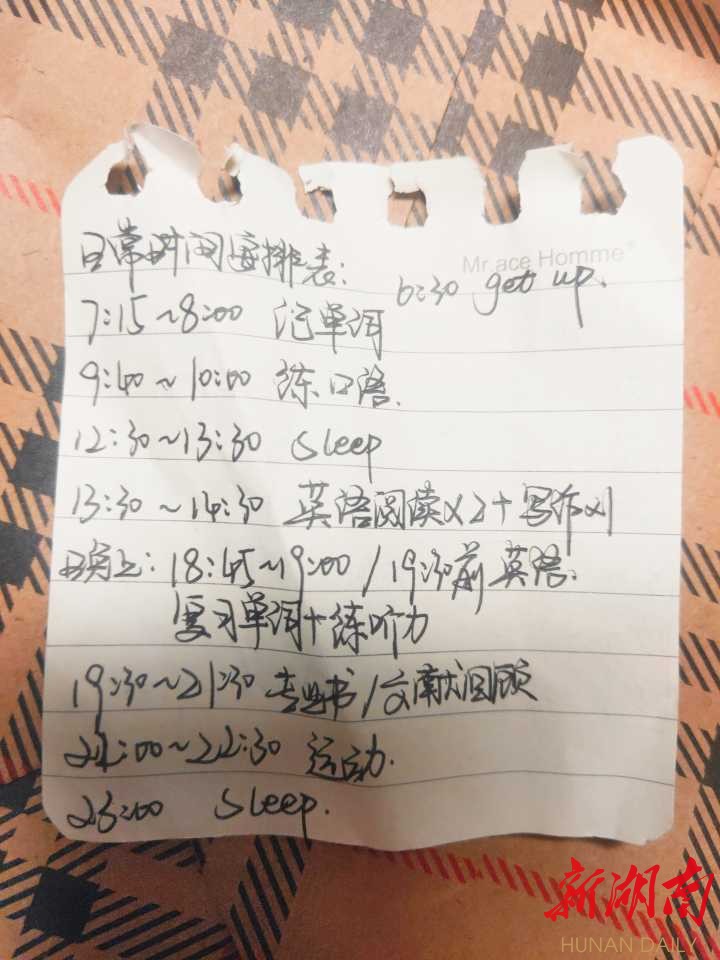 Mr.ace Homme®
日常时间安排表:
6:30 get up.
7:15~8:00 记单词
9:40~10:00 练口语.
12:30~13:30 Sleep
13:30~14:30 英语阅读x2+写作x1
晚上: 18:45~19:00 / 19:30前 英语.
复习单词+练听力
19:30~21:30 专业书/文献回顾
22:00~22:30 运动.
23:00 Sleep.
新湖南
HUNAN DAILY